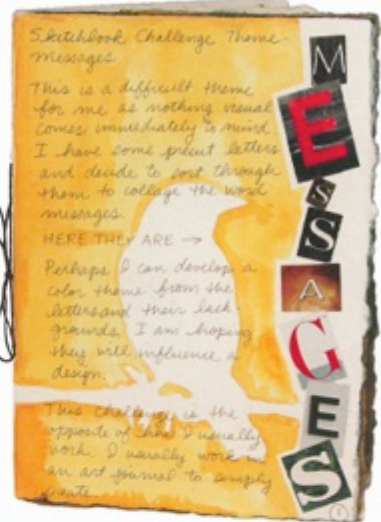 Sketchbook Challenge Theme-
Messages
This is a difficult theme
for me as nothing visual
comes immediately to mind
I have some precut letters
and decide to sort through
them to collage the word
messages.
HERE THEY ARE →
Perhaps I can develop a
color theme from the
letters and their back-
grounds. I am hoping
they will influence a
design.
This challenge is the
opposite of how I usually
work. I usually work in
an art journal to simply
create.
MESSAGES